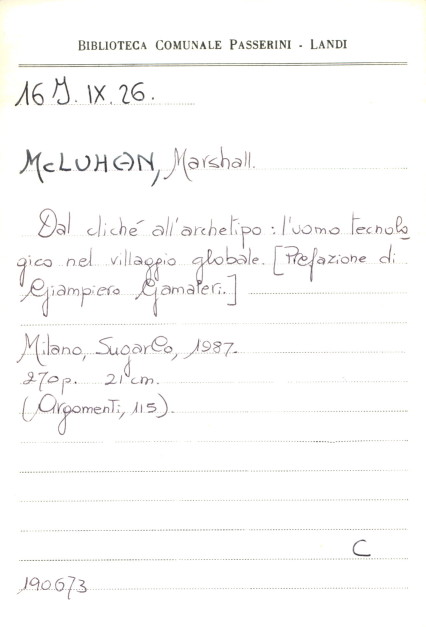 BIBLIOTECA COMUNALE PASSERINI - LANDI
16 J. IX. 26.
McLUHAN, Marshall.
Dal cliché all'archetipo : l'uomo tecnolo
gico nel villaggio globale. [Prefazione di
Giampiero Gamaleri.]
Milano, SugarCo, 1987.
270 p. 21 cm.
(Argomenti, 115).
C
190673